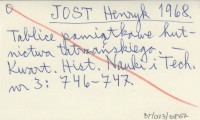 JOST Henryk 1968.
Tablice pamiątkowe hut-
nictwa tatrzańskiego. –
Kwart. Hist. Nauki i Tech.
nr 3: 746-747.